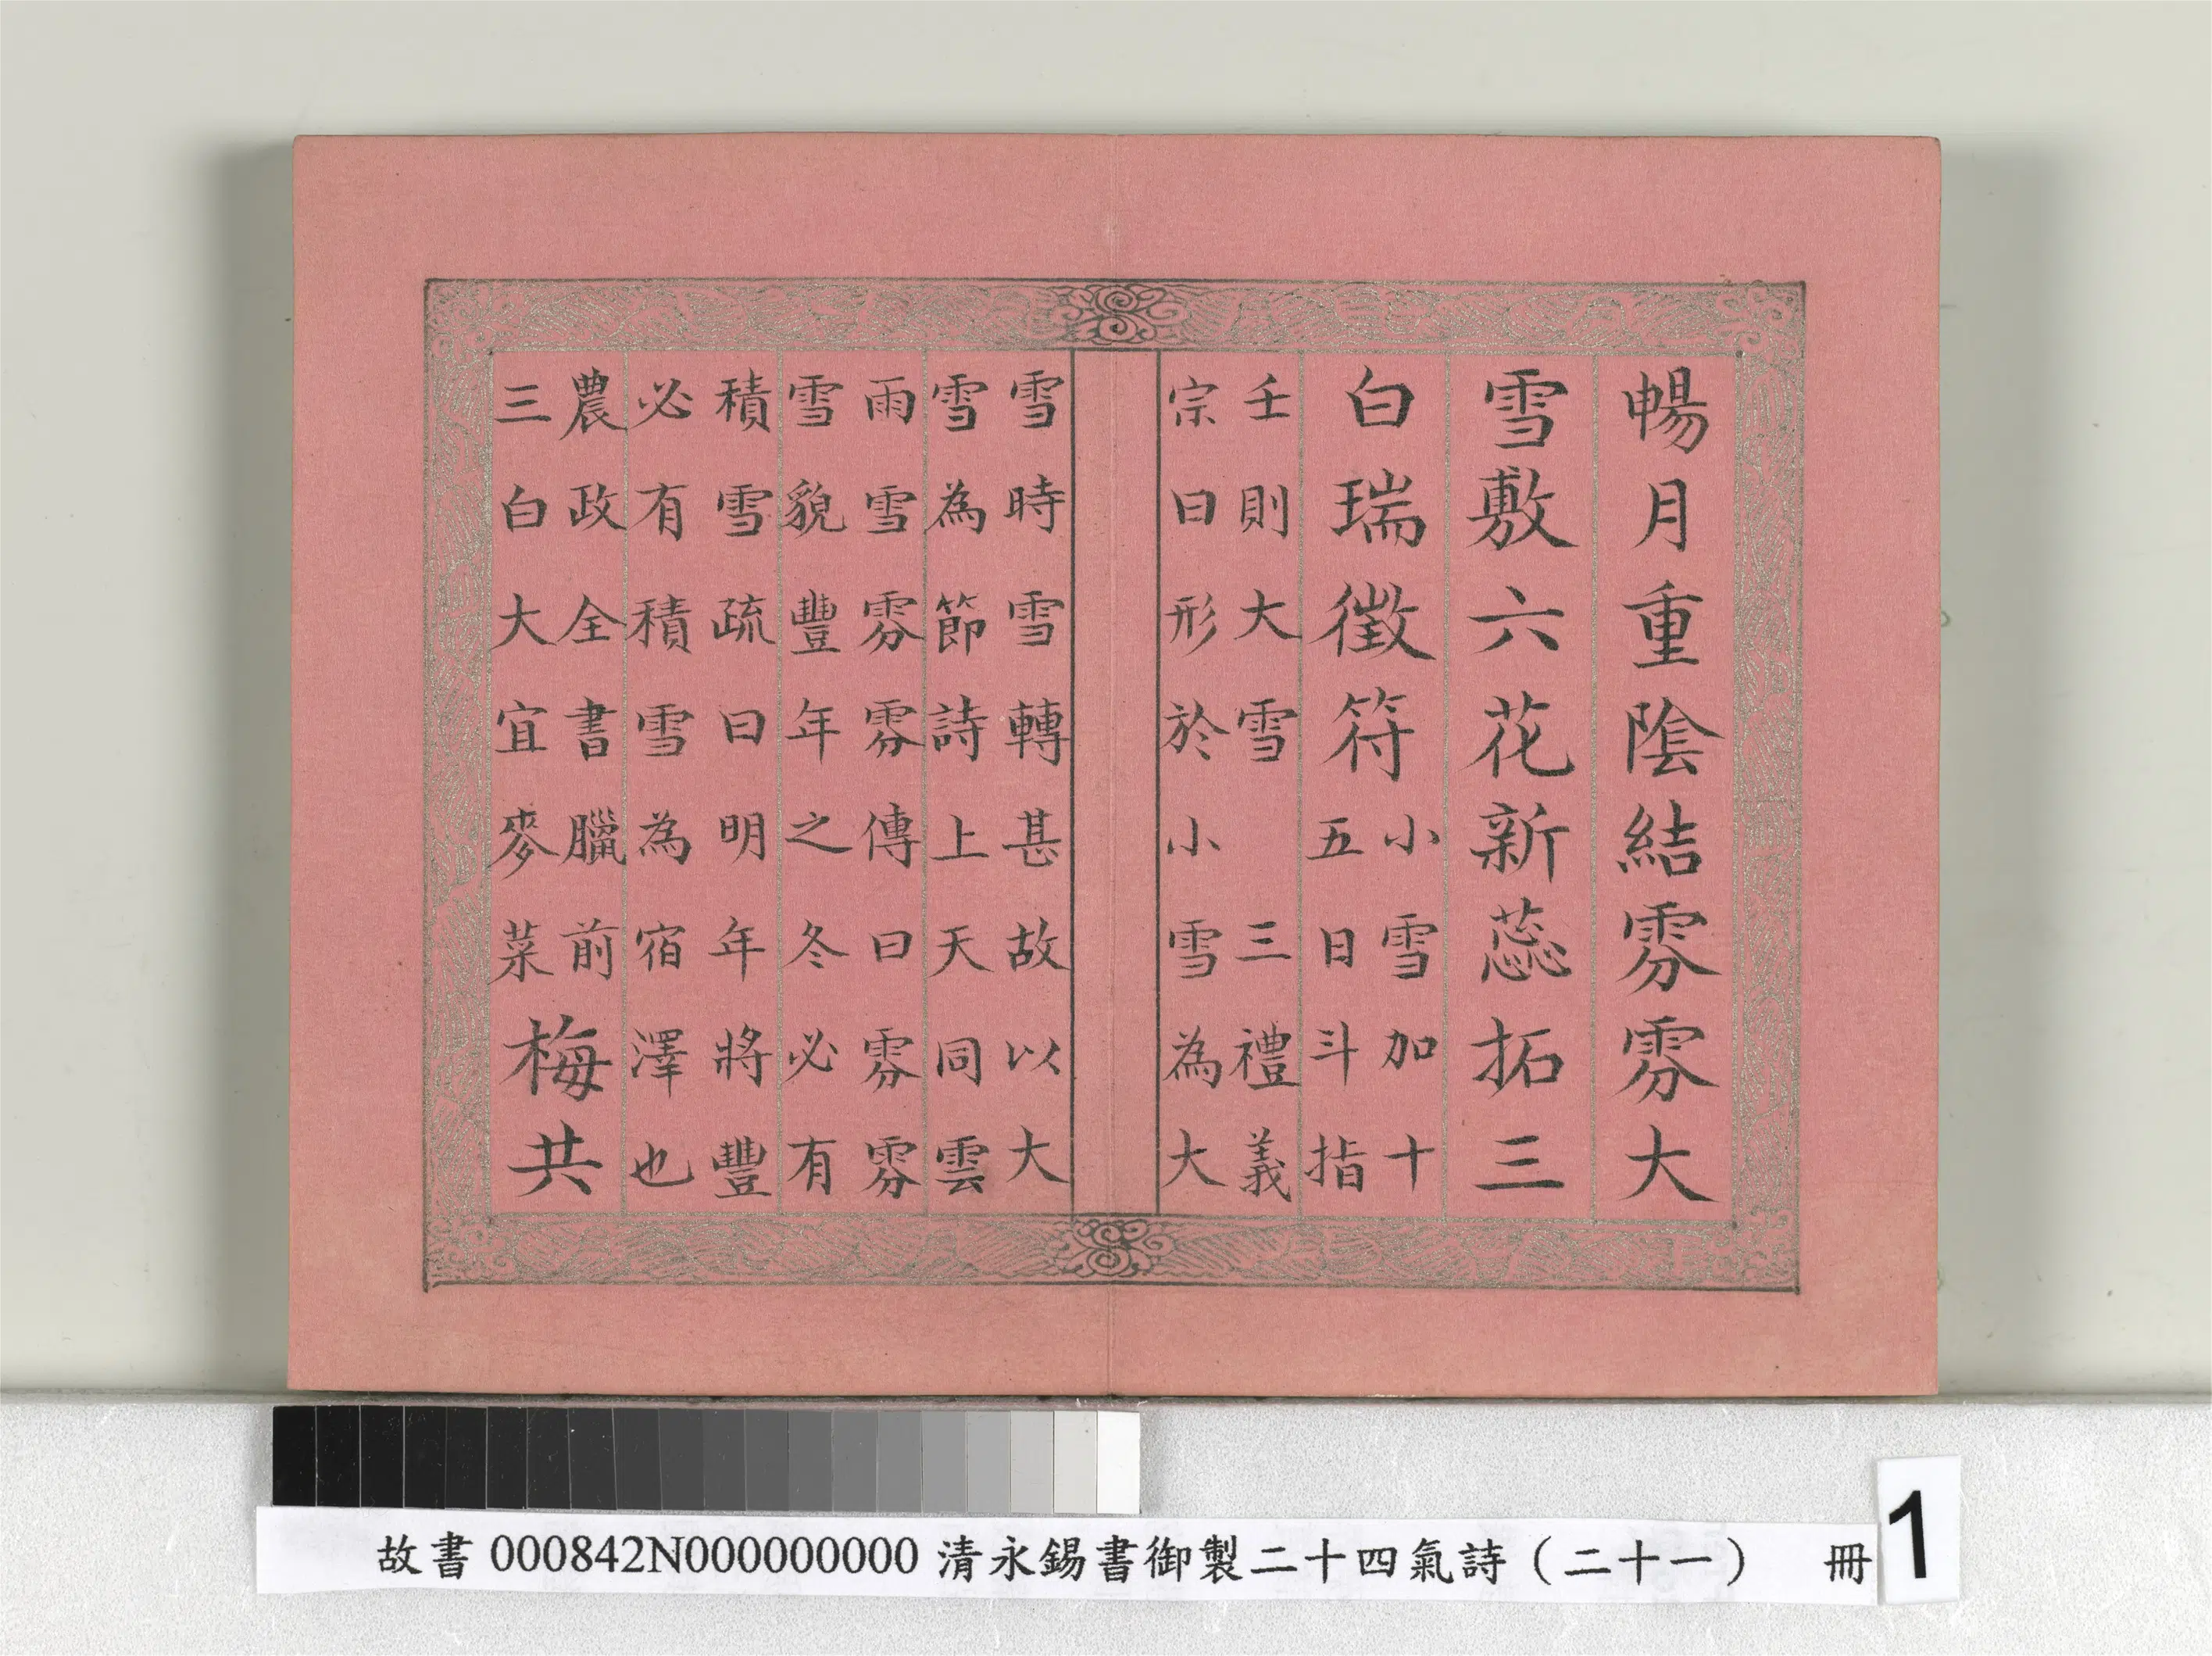 暢月重陰結雰雰大
雪敷六花新蕊拓三
白瑞徵符
小雪加十
五日斗指
壬則大雪 三禮義
宗曰形於小雪為大
雪時雪轉甚故以大
雪為節詩上天同雲
雨雪雰雰傳曰雰雰
雪貌豐年之冬必有
積雪疏曰明年將豐
必有積雪為宿澤也
農政全書臘前
三白大宜麥菜
梅共
故書 000842N000000000 清永錫書御製二十四氣詩（二十一） 冊
1